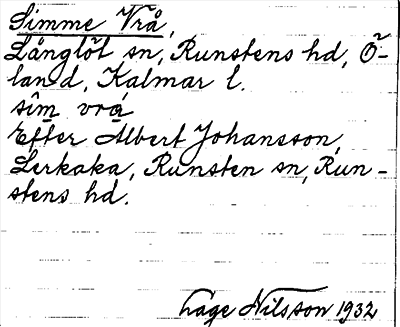 Simme Vrå,
Långlöt sn, Runstens hd, Ö-
land, Kalmar l.
sim vrá
Efter Albert Johansson,
Lerkaka, Runsten sn, Run-
stens hd.
Åge Nilsson 1932